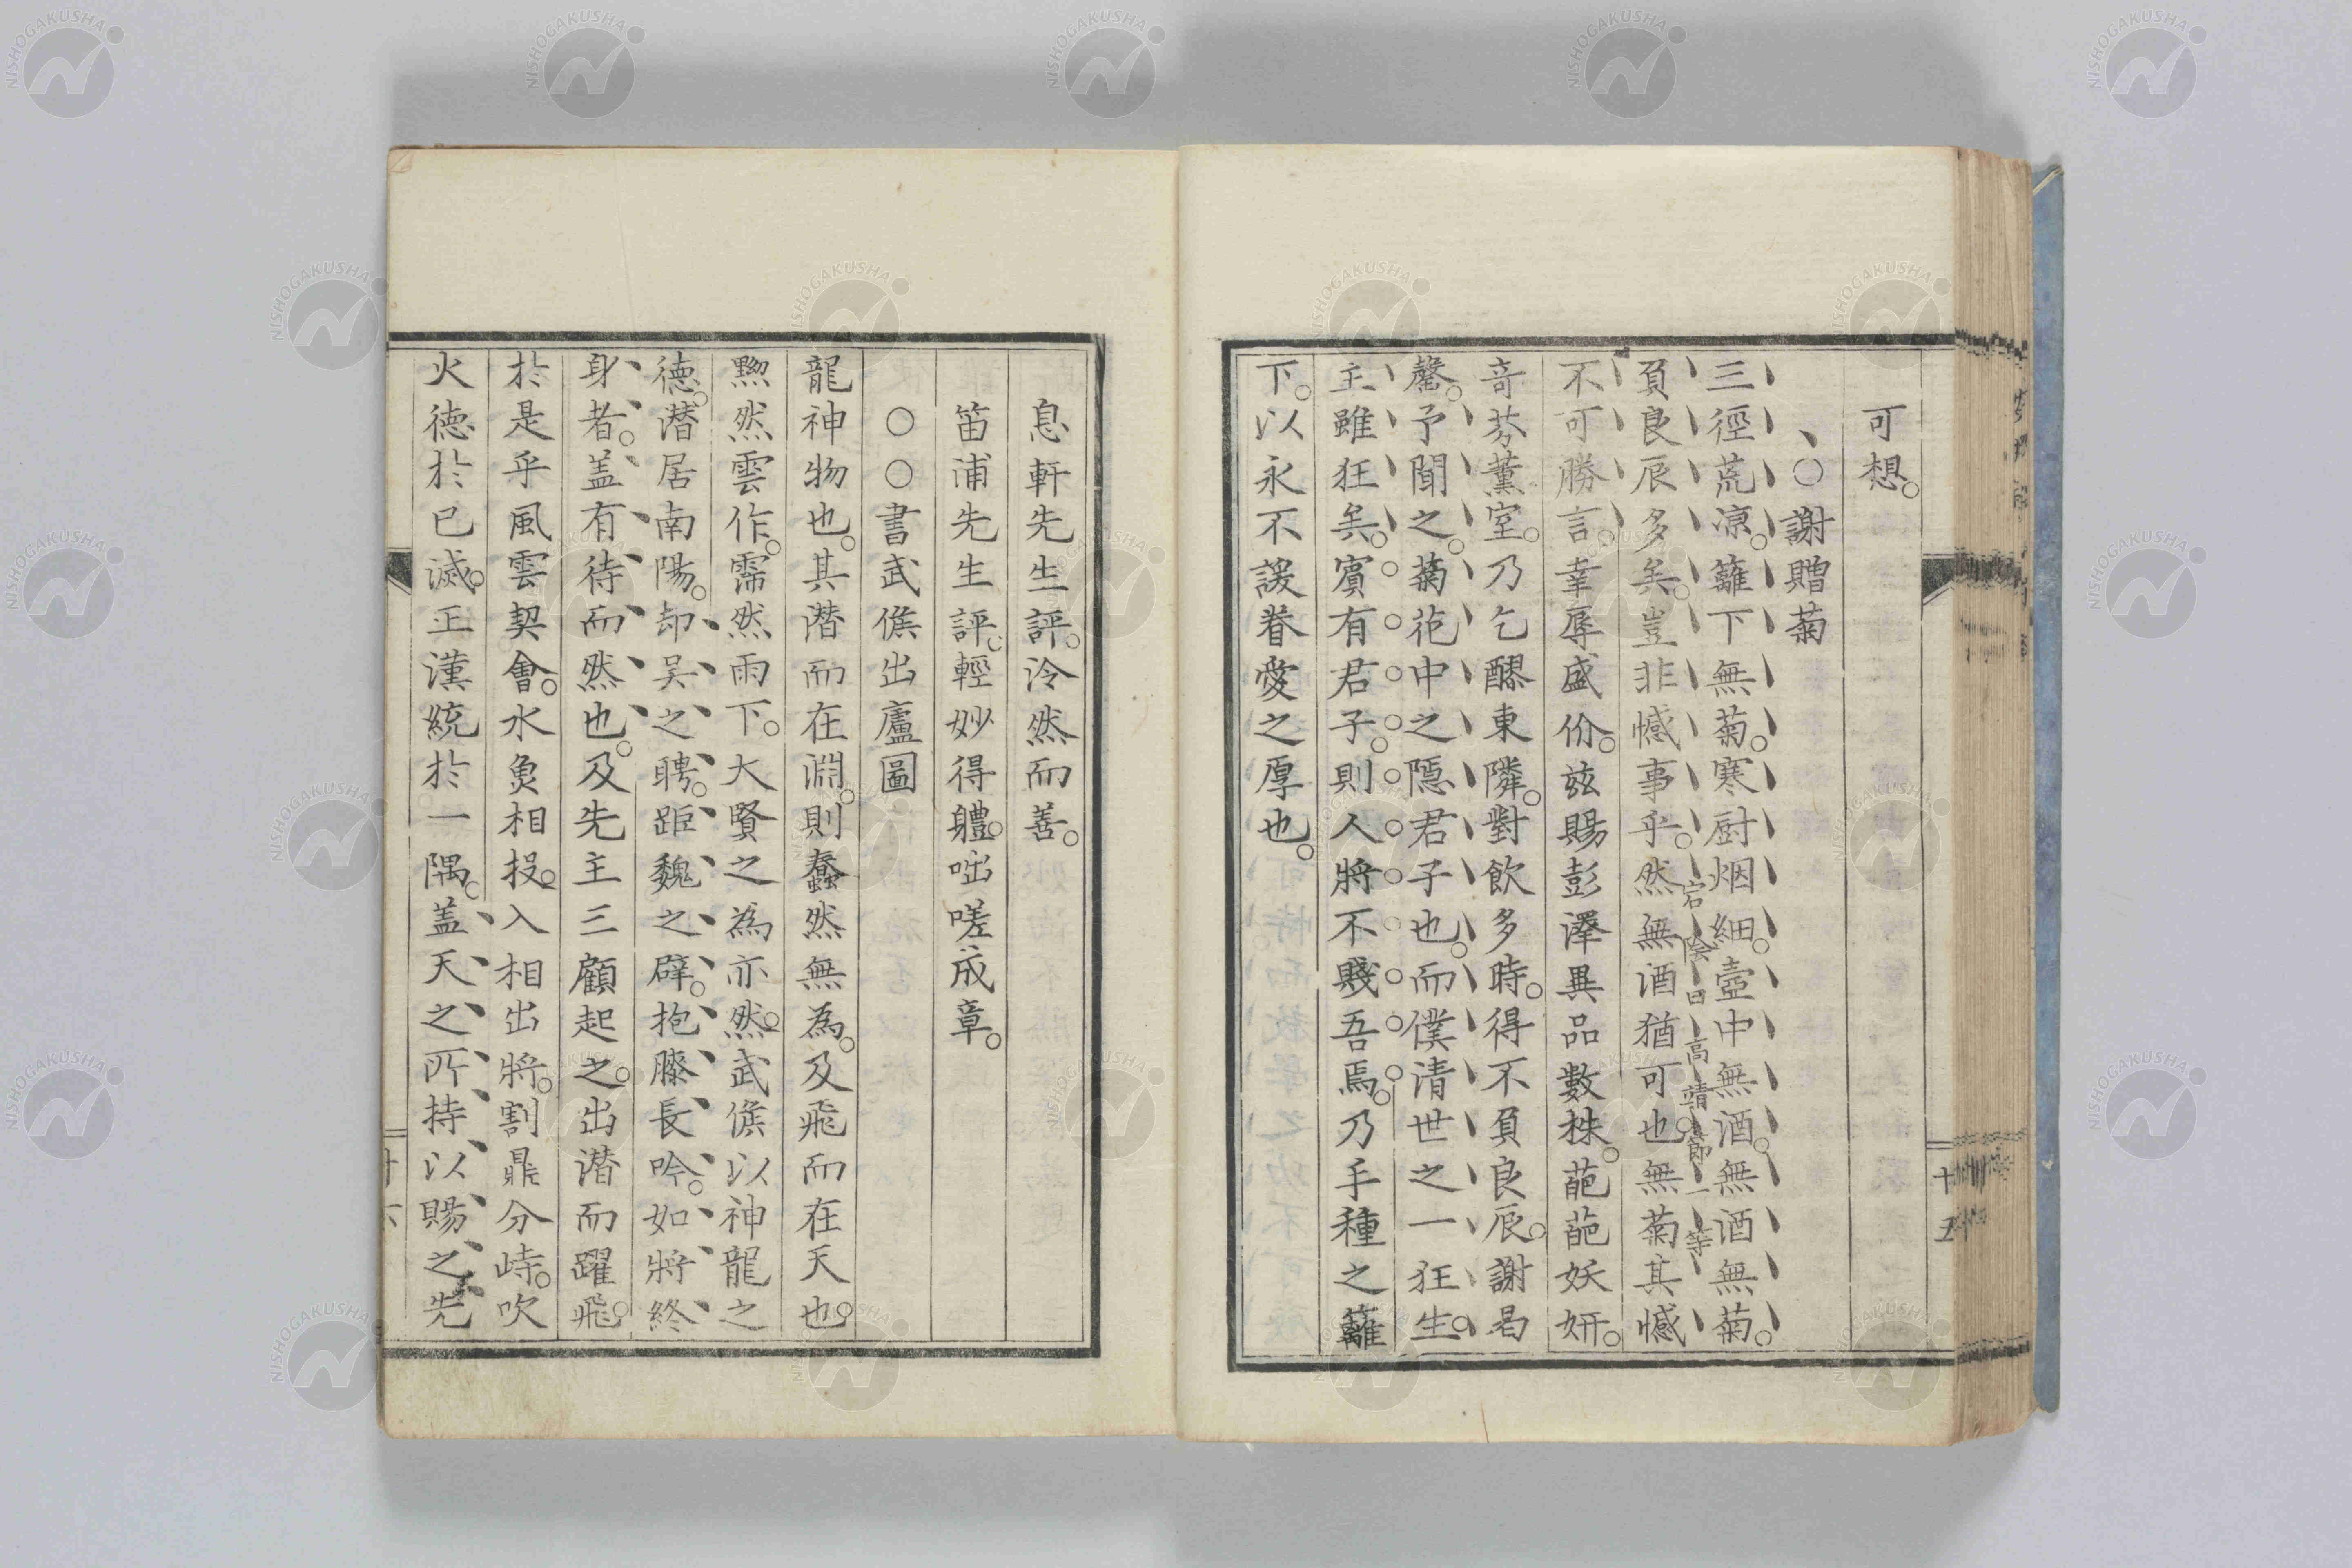 可想。
○謝贈菊
三徑荒凉。籬下無菊。寒厨烟細。壺中無酒。無酒無菊。
負良辰多矣。豈非憾事乎。然無酒猶可也。無菊其憾
宕陰曰高靖節一等
不可勝言。幸辱盛价。玆賜彭澤異品數株。葩葩妖妍。
奇芬薰室。乃乞醪東隣。對飲多時。得不負良辰。謝曷
罄。予聞之。菊花中之隠君子也。而僕清世之一狂生。
主雖狂矣。賓有君子。則人將不賤吾焉。乃手種之籬
下。以永不諼眷愛之厚也。
十五
息軒先生評。泠然而善。
笛浦先生評。輕妙得軆。咄嗟成章。
○○書武侯出廬圖
龍神物也。其潜而在淵。則蠢然無為。及飛而在天也。
黙然雲作。霈然雨下。大賢之為亦然。武侯以神龍之
徳。潜居南陽。却吴之聘。距魏之辟。抱膝長吟。如將終
身者。盖有待而然也。及先主三顧起之。出潜而躍飛。
於是乎風雲契會。水魚相投。入相出將。割鼎分峙。吹
火徳於已滅。正漢統於一隅。盖天之所持以賜之先
十六